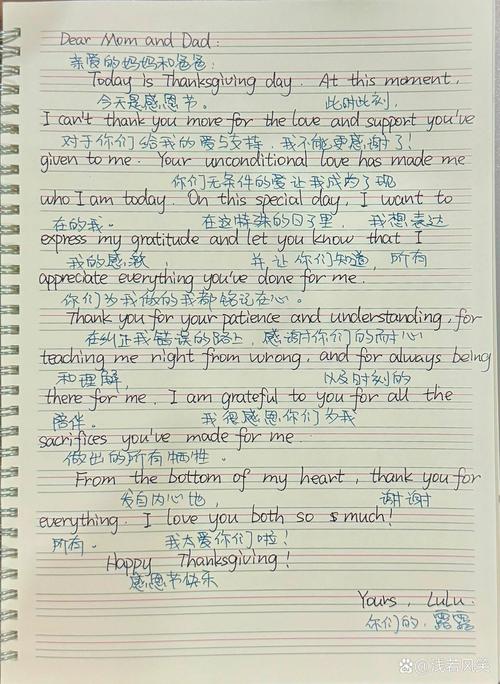 Dear Mom and Dad:
亲爱的妈妈和爸爸:
Today is Thanksgiving day. At this moment,
今天是感恩节。 此时此刻,
I can't thank you more for the love and support you've
对于你们给我的爱与支持,我不能更感谢了!
given to me. Your unconditional love has made me
你们无条件的爱让我成为了现
who I am today. On this special day, I want to
在的我。 在这特殊的日子里, 我想表达
express my gratitude and let you know that I
我的感激, 并让你们知道,所有
appreciate everything you've done for me.
你们为我做的我都铭记在心。
Thank you for your patience and understanding, for
在纠正我错误的路上,感谢你们的耐心
teaching me right from wrong, and for always being
和理解, 以及时刻的
there for me. I am grateful to you for all the
陪伴。 我很感恩你们为我
sacrifices you've made for me.
做出的所有牺牲。
From the bottom of my heart, thank you for
发自内心地, 谢谢
everything. I love you both so much!
所有。 我太爱你们啦!
Happy Thanksgiving!
感恩节快乐
Yours, LuLu.
你们的,露露
浅若风笑